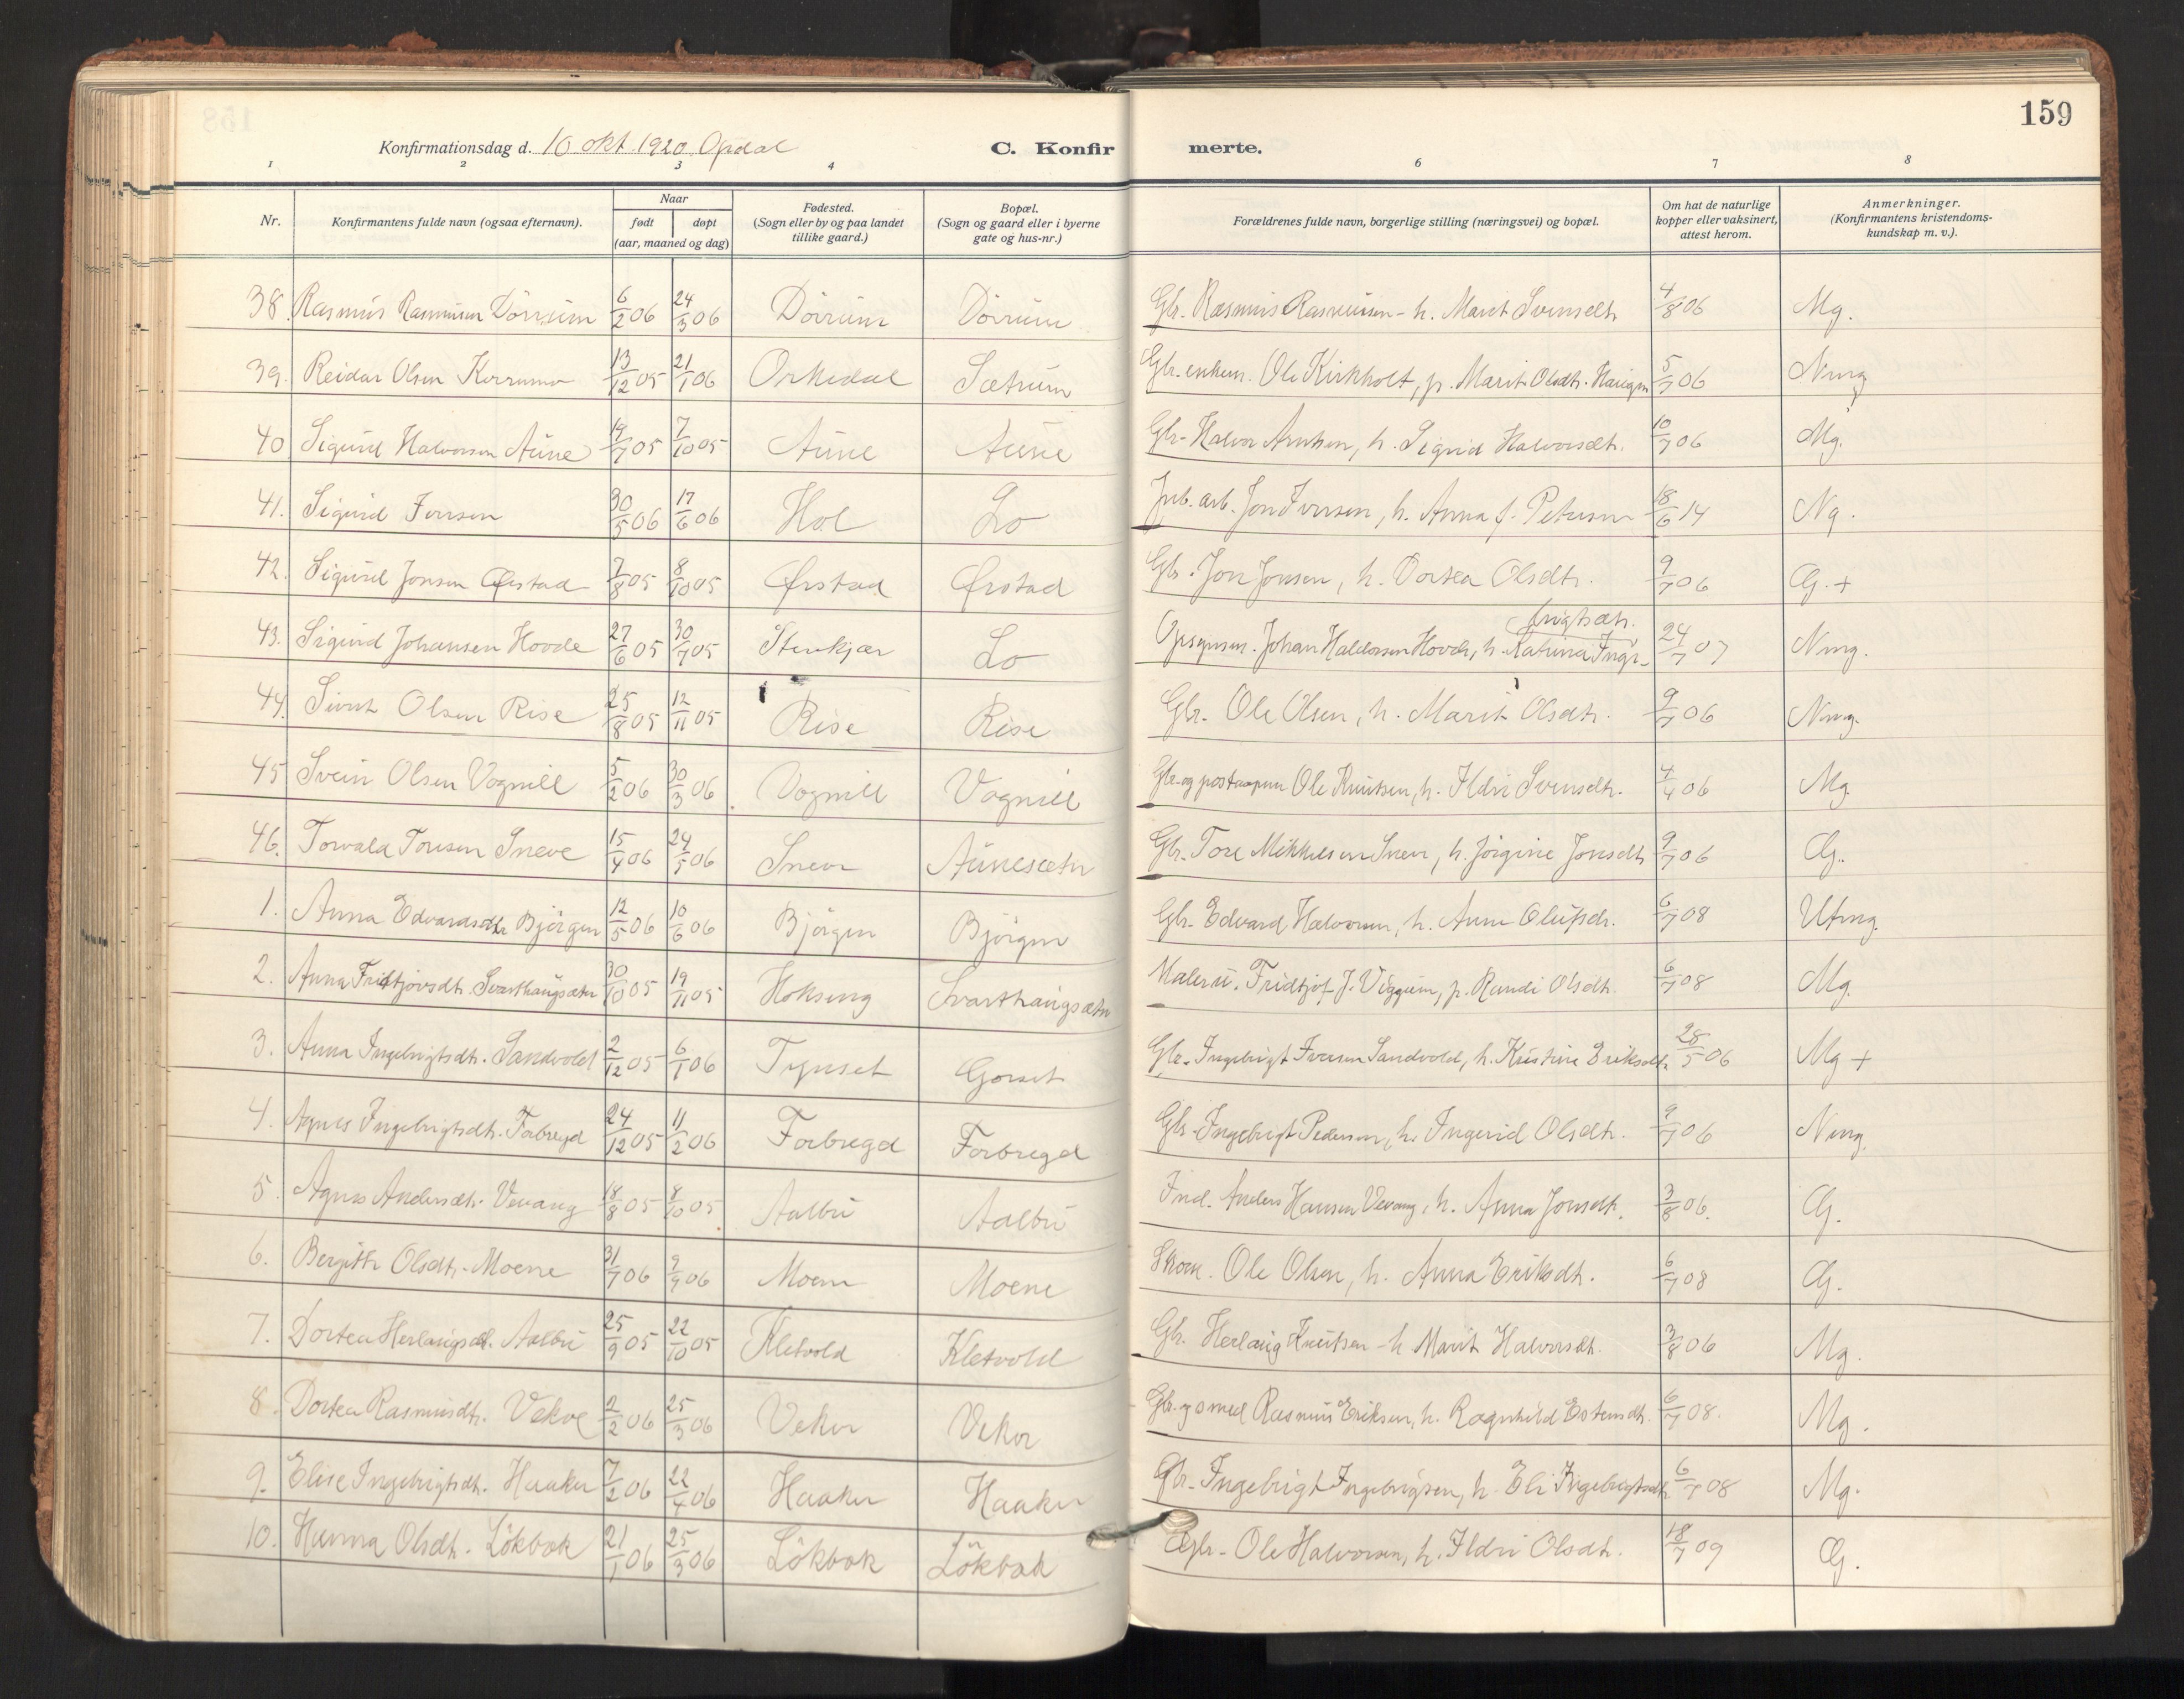 159
Konfirmationsdag d. 10 okt. 1920. Opdal
C. Konfir merte.
1 2 3 4 6 7 8
Nr.
Konfirmantens fulde navn (ogsaa efternavn).
Naar
født døpt
(aar, maaned og dag)
Fødested.
(Sogn eller by og paa landet
tillike gaard.)
Bopæl.
(Sogn og gaard eller i byerne
gate og hus-nr.)
Forældrenes fulde navn, borgerlige stilling (næringsvei) og bopæl.
Om hat de naturlige
kopper eller vaksinert,
attest herom.
Anmerkninger.
(Konfirmantens kristendoms-
kundskap m. v.).
38. Rasmus Rasmusen Dörrum 6/2 06 24/3 06 Dörrum Dörrum Gbr. Rasmus Rasmusen - h. Marit Svensdtr. 4/8 06 Mg.
39. Reidar Olsen 13/12 05 21/1 06 Orkedal Sætrum Gbr. enkem. Ole Kirkholt, p. Marit Olsdtr. Haugen 5/7 06 Nmg
40 Sigurd Halvorsen Aune 19/7 05 7/10 05 Aune Aune Gbr. Halvor Arntsen, h. Sigrid Halvorsdtr. 10/7 06 Mg.
41. Sigurd Iversen 30/5 06 17/6 06 Hol Lo Jrb. arb. Jon Iversen, h. Anna f. Petersen 18/6 14 Ng.
42. Sigurd Jonsen Ørstad 7/8 05 8/10 05 Ørstad Ørstad Gbr. Jon Jonsen, h. Dortea Olsdtr. 9/7 06 G. +
43. Sigurd Johansen Hovde 27/6 05 30/7 05 Stenkjær Lo Opsynsm. Johan Haldosen Hovde, h. Katrina Inge-
brigtsdtr. 24/7 07 Nmg.
44. Sivert Olsen Rise 25/8 05 12/11 05 Rise Rise Gbr. Ole Olsen, h. Marit Olsdtr. 9/7 06 Nmg.
45 Svein Olsen Vognill 5/2 06 30/3 06 Vognill Vognill Gbr. og postaapner Ole Knutsen, h. Ildri Svensdtr. 4/4 06 Mg.
46. Torvald Toresen Sneve 15/4 06 24/5 06 Sneve Aunesætr Gbr. Tore Mikkelsen Sneve, h. Jörgine Jonsdtr 9/7 06 G.
1. Anna Edvardsdtr Björgen 12/5 06 10/6 06 Björgen Björgen Gbr. Edvard Halvorsen, h. Anne Olufsdr. 6/7 08 Utmg.
2. Anna Fridtjovsdtr. Svarthaugsætr 30/10 05 19/11 05 Hokseng Svarthaugsætr Maler u. Fridtjof J. Viggum, p. Randi Olsdtr. 6/7 08 Mg.
3. Anna Ingebrigtsdtr. Sandvold 2/12 05 6/1 06 Tynset Gorset Gbr. Ingebrigt Iversen Sandvold, h. Kristine Eriksdtr. 28/5 06 Mg +
4. Agnes Ingebrigtsdtr. Forbregd 24/12 05 11/2 06 Forbregd Forbregd Gbr. Ingebrigt Pedersen, h. Ingerid Olsdtr. 9/7 06 Nmg.
5. Agnes Andersdtr. Vevang 18/8 05 8/10 05 Aalbu Aalbu Ind. Anders Hansen Vevang, h. Anna Jonsdtr. 3/8 06. G.
6. Bergitte Olsdtr. Moene 31/7 06 9/9 06 Moene Moene Skom. Ole Olsen, h. Anna Eriksdtr. 6/7 08 G.
7. Dortea Herlaugsdtr. Aalbu 25/9 05 22/10 05 Kletvold Kletvold Gbr. Herlaug Knutsen - h. Marit Halvorsdtr. 3/8 06 Mg.
8. Dortea Rasmusdtr. Vekve 2/2 06 25/3 06 Vekve Vekve Gbr. og smed Rasmus Eriksen, h. Ragnhild Estensdtr. 6/7 08. Mg.
9. Elise Ingebrigtsdtr. Haaker 7/2 06 22/4 06 Haaker Haaker Gbr. Ingebrigt Ingebrigtsen, h. Eli Ingebrigtsdtr. 6/7 08 Mg.
10. Hanna Olsdtr. Lökbok 21/1 06 25/3 06 Lökbok Lökbok Gbr. Ole Halvorsen, h. Ildri Olsdtr. 18/7 09 G.